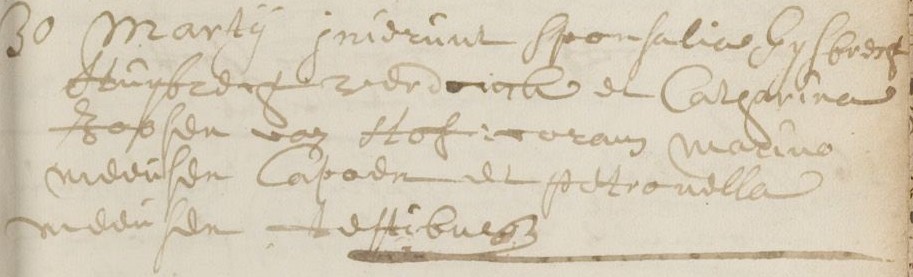 30 Martij inierunt sponsalia Gysbrecht
Huijbrecht verdonck et Catharina
Jansen van Hof: coram Marino
meeusen Capoen et petronella
meeusen testibus